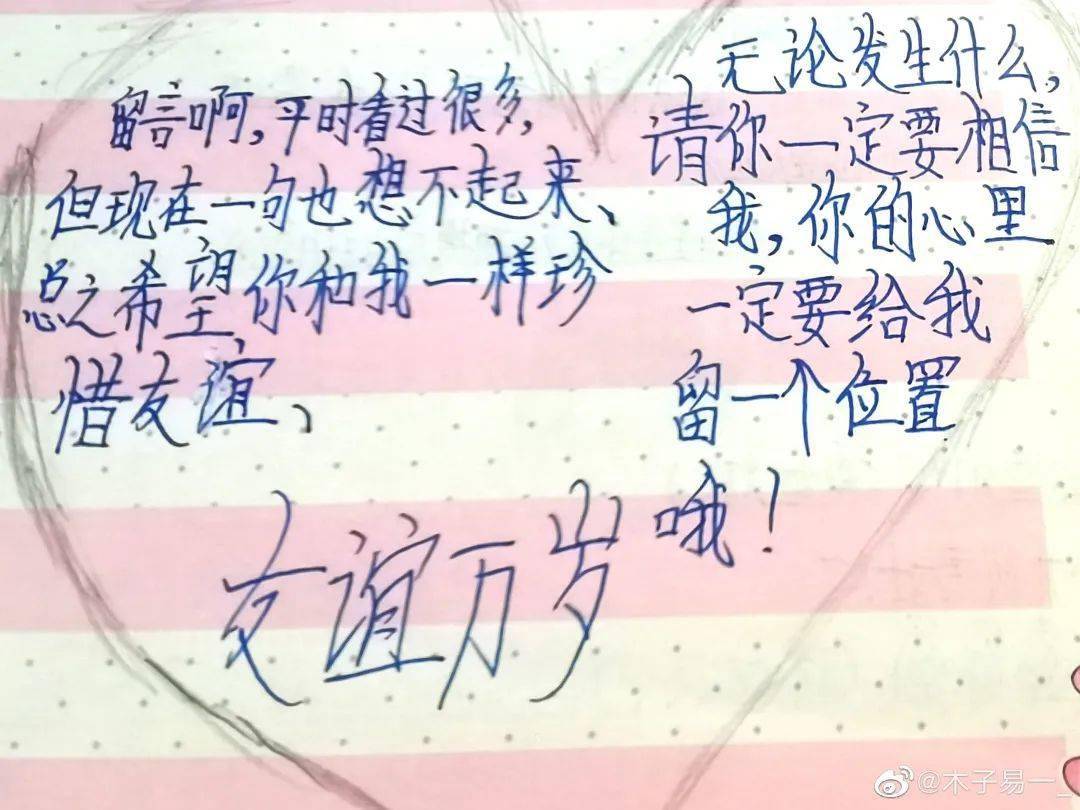 留言啊,平时看过很多,
但现在一句也想不起来、
总之希望,你和我一样珍
惜友谊、
无论发生什么,
请你一定要相信
我,你的心里
一定要给我
留一个位置
哦!
友谊万岁
@木子易一_